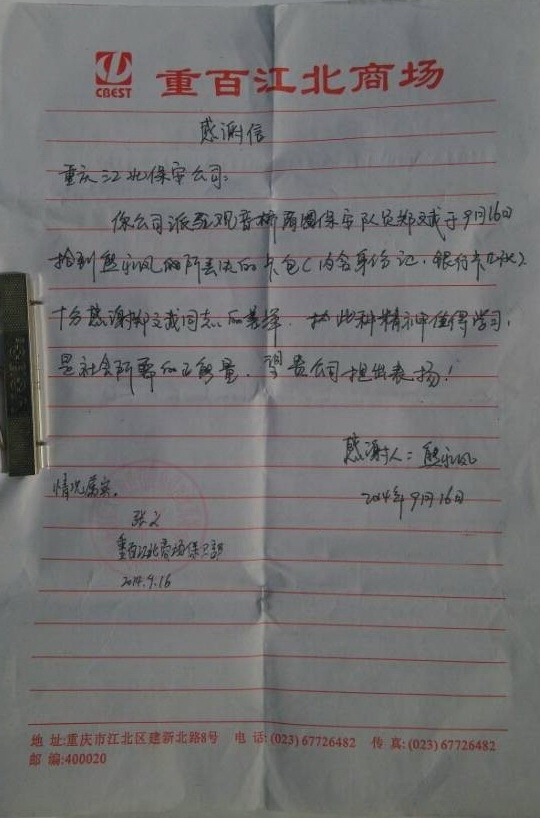 CBEST
重百江北商场
感谢信
重庆江北保安公司:
你公司派至观音桥商圈保安队员郑文成于9月16日
拾到熊 风的所丢失的卡包(内含身份证、银行卡
十分感谢郑文成同志的 此种精神值得学习,
是社会所要的正能量,望贵公司提出表扬!
感谢人:熊 风
2014年9月16日
情况属实。
张
重百江北商场保卫部
2014.9.16
地 址:重庆市江北区建新北路8号 电 话:(023) 67726482 传 真:(023) 67726482
邮 编:400020